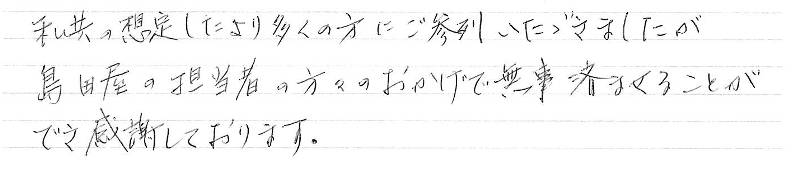 私共の想定したより多くの方にご参列いただきましたが
島田屋の担当者の方々のおかげで無事済ませることが
でき感謝しております。